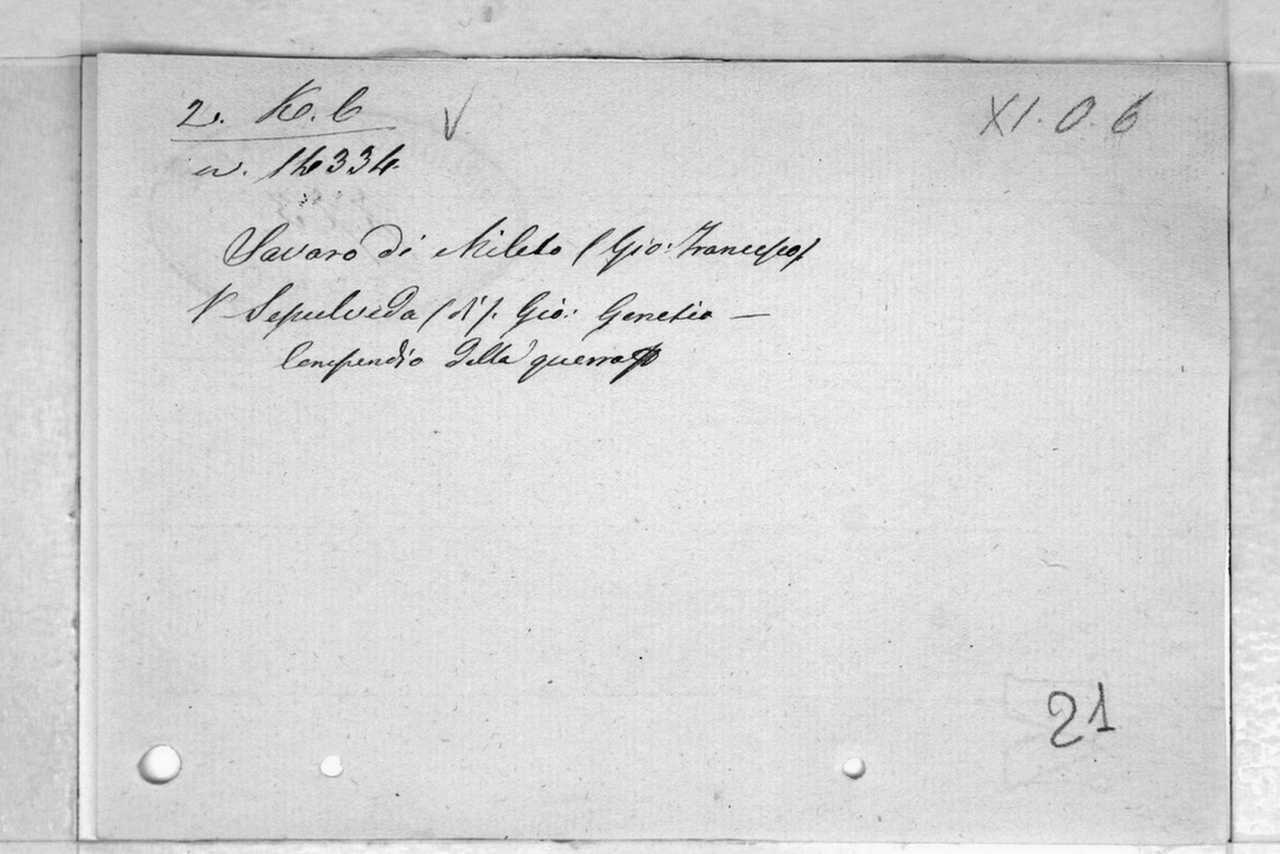 2. K. 6
XI. O. 6
n. 14334
Savaro di Mileto (Gio: Francesco)
V Sepulveda (di). Gio: Genesio —
Compendio della guerra
21